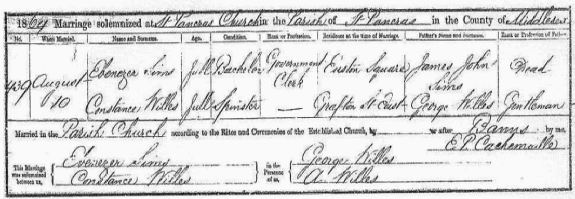 1864 Marriage solemnized at St Pancras Church in the Parish of St Pancras in the County of Middlesex
No. When Married. Name and Surname. Age. Condition. Rank or Profession. Residence at the time of Marriage. Father's Name and Surname. Rank or Profession of
439 August 10 Ebenezer Sims Full Bachelor Government Clerk Euston Square James John Sims Dead
Constance Willes Full Spinster — Grafton St East George Willes Gentleman
Married in the Parish Church according to the Rites and Ceremonies of the Established Church, by or after Banns by me,
E.P. Cachemaille
This Marriage was solemnized between us, Ebenezer Sims Constance Willes in the Presence of us, George Willes A. Willes